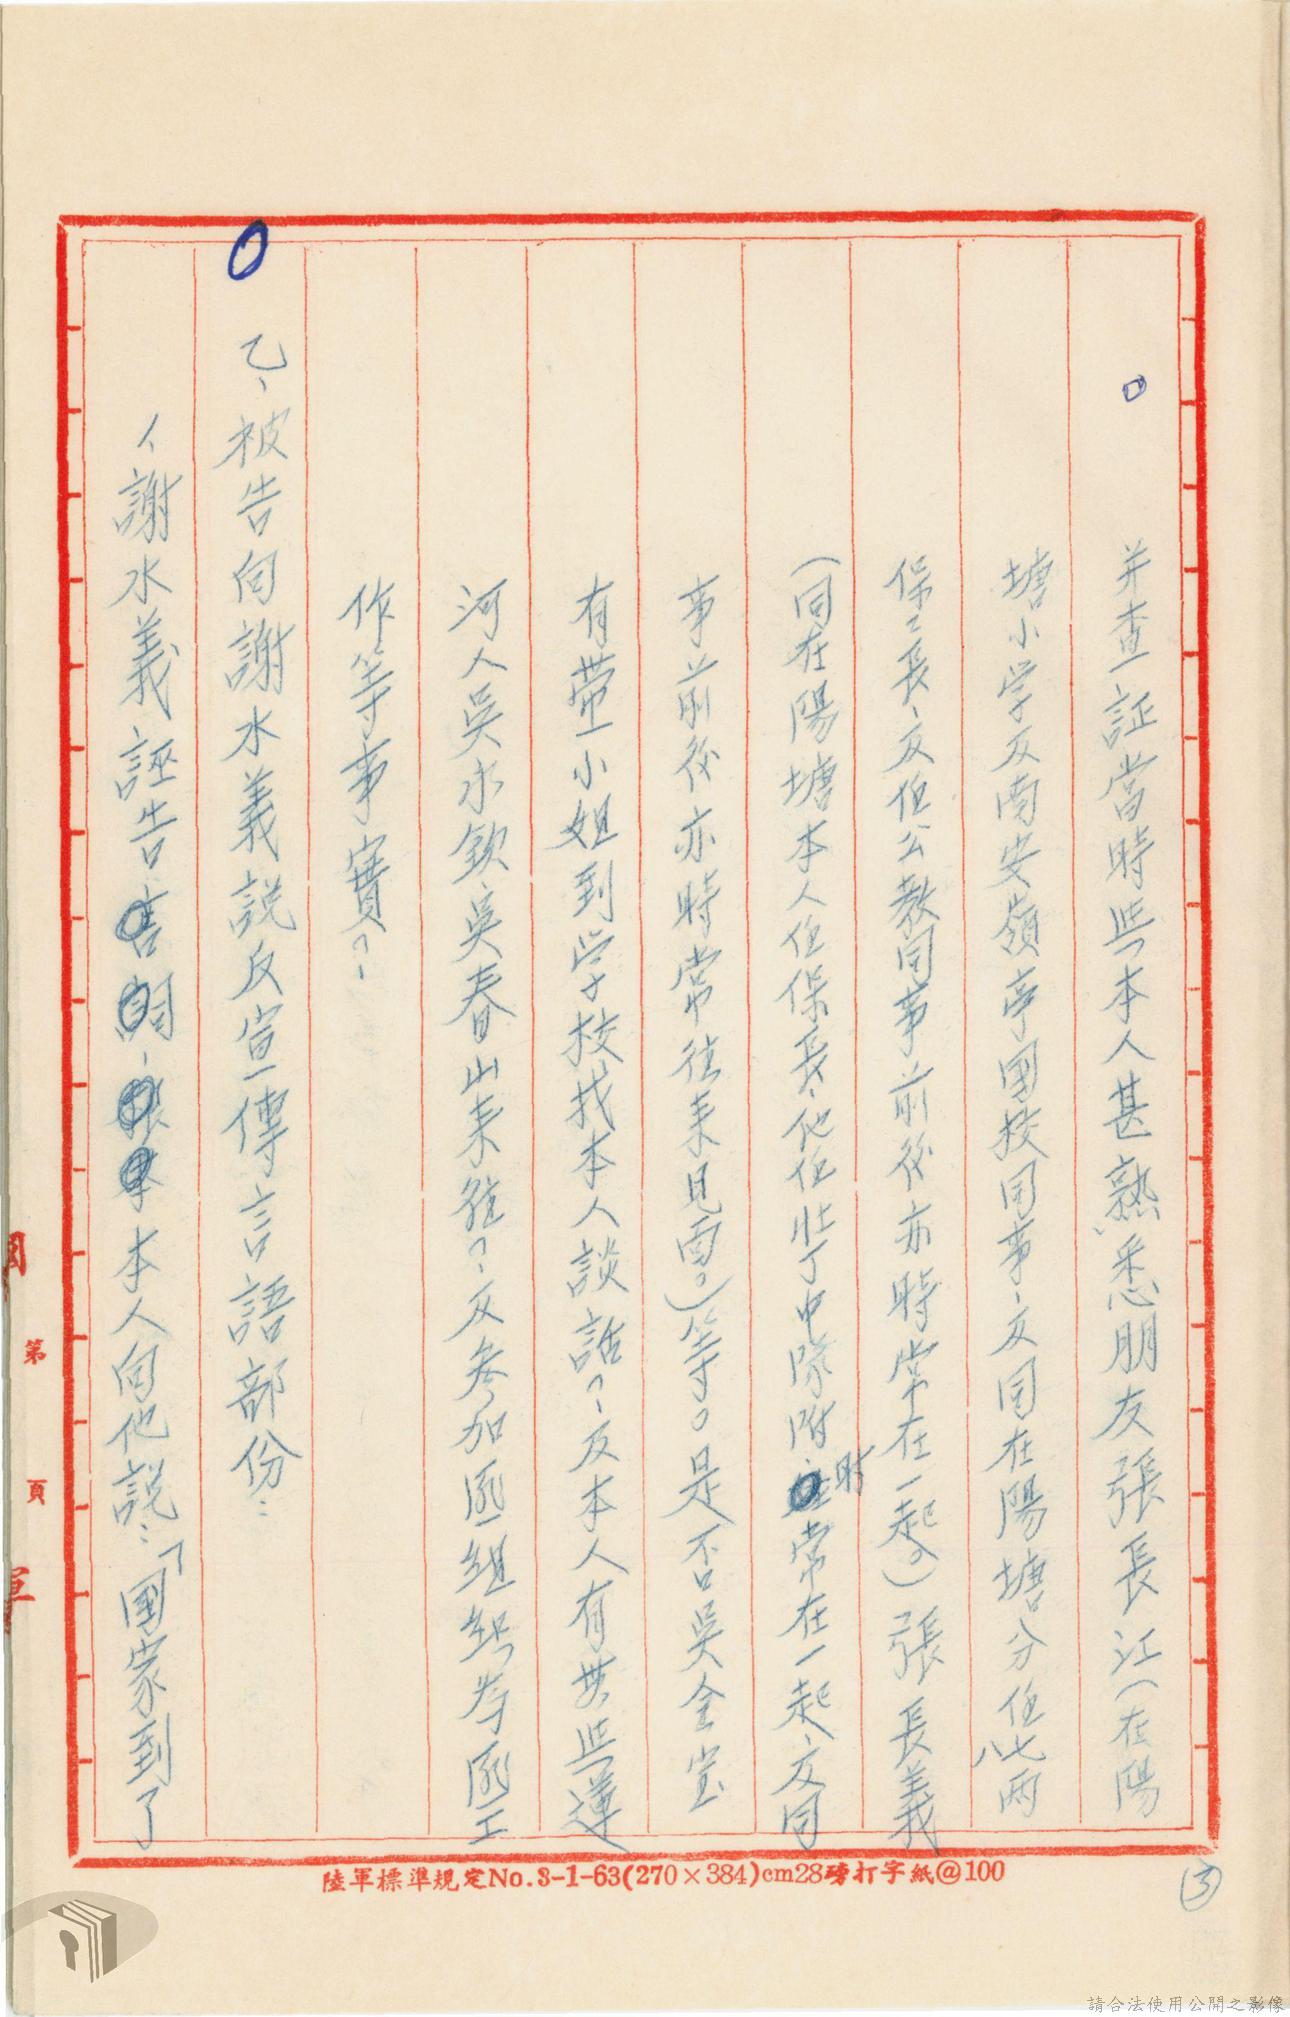 并查証當時些本人甚熟悉朋友張長江(在陽
塘小学反南安嶺亭國校同事、又同在陽塘分任八七兩
保之長、又任公教同事前後亦時常在一起。)張長義
(同在陽塘本人任保長、他任壯丁中隊附時常在一起、又同
事前後亦時常往来見面。)等。是否吳金堂
有帶小姐到学校找本人談話?、反本人有共些蓮
河人吳水欽、吳春山来往?、反参加匪組織為匪工
作等事實?、
乙、被告向謝水義說反宣傳言語部份:
1、謝水義誣告本人向他説:「國家到了
國 第 頁 軍
陸軍標準規定No.3-1-63(270×384)cm28磅打字紙@100
3
請合法使用公開之影像